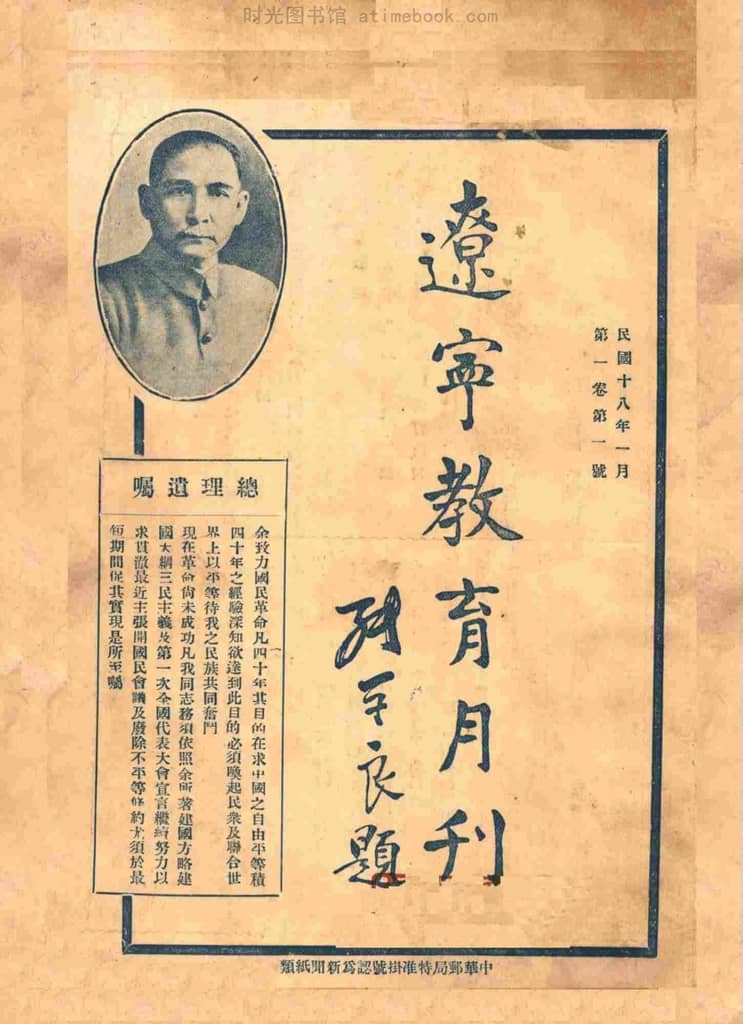 时光图书馆 atimebook.com
民國十八年一月
第一卷第一號
遼寧教育月刊
張學良題
總理遺囑
余致力國民革命凡四十年其目的在求中國之自由平等積
四十年之經驗深知欲達到此目的必須喚起民衆及聯合世
界上以平等待我之民族共同奮鬥
現在革命尚未成功凡我同志務須依照余所著建國方略建
國大綱三民主義及第一次全國代表大會宣言繼續努力以
求貫澈最近主張開國民會議及廢除不平等條約尤須於最
短期間促其實現是所至囑
中華郵局特准掛號認爲新聞紙類